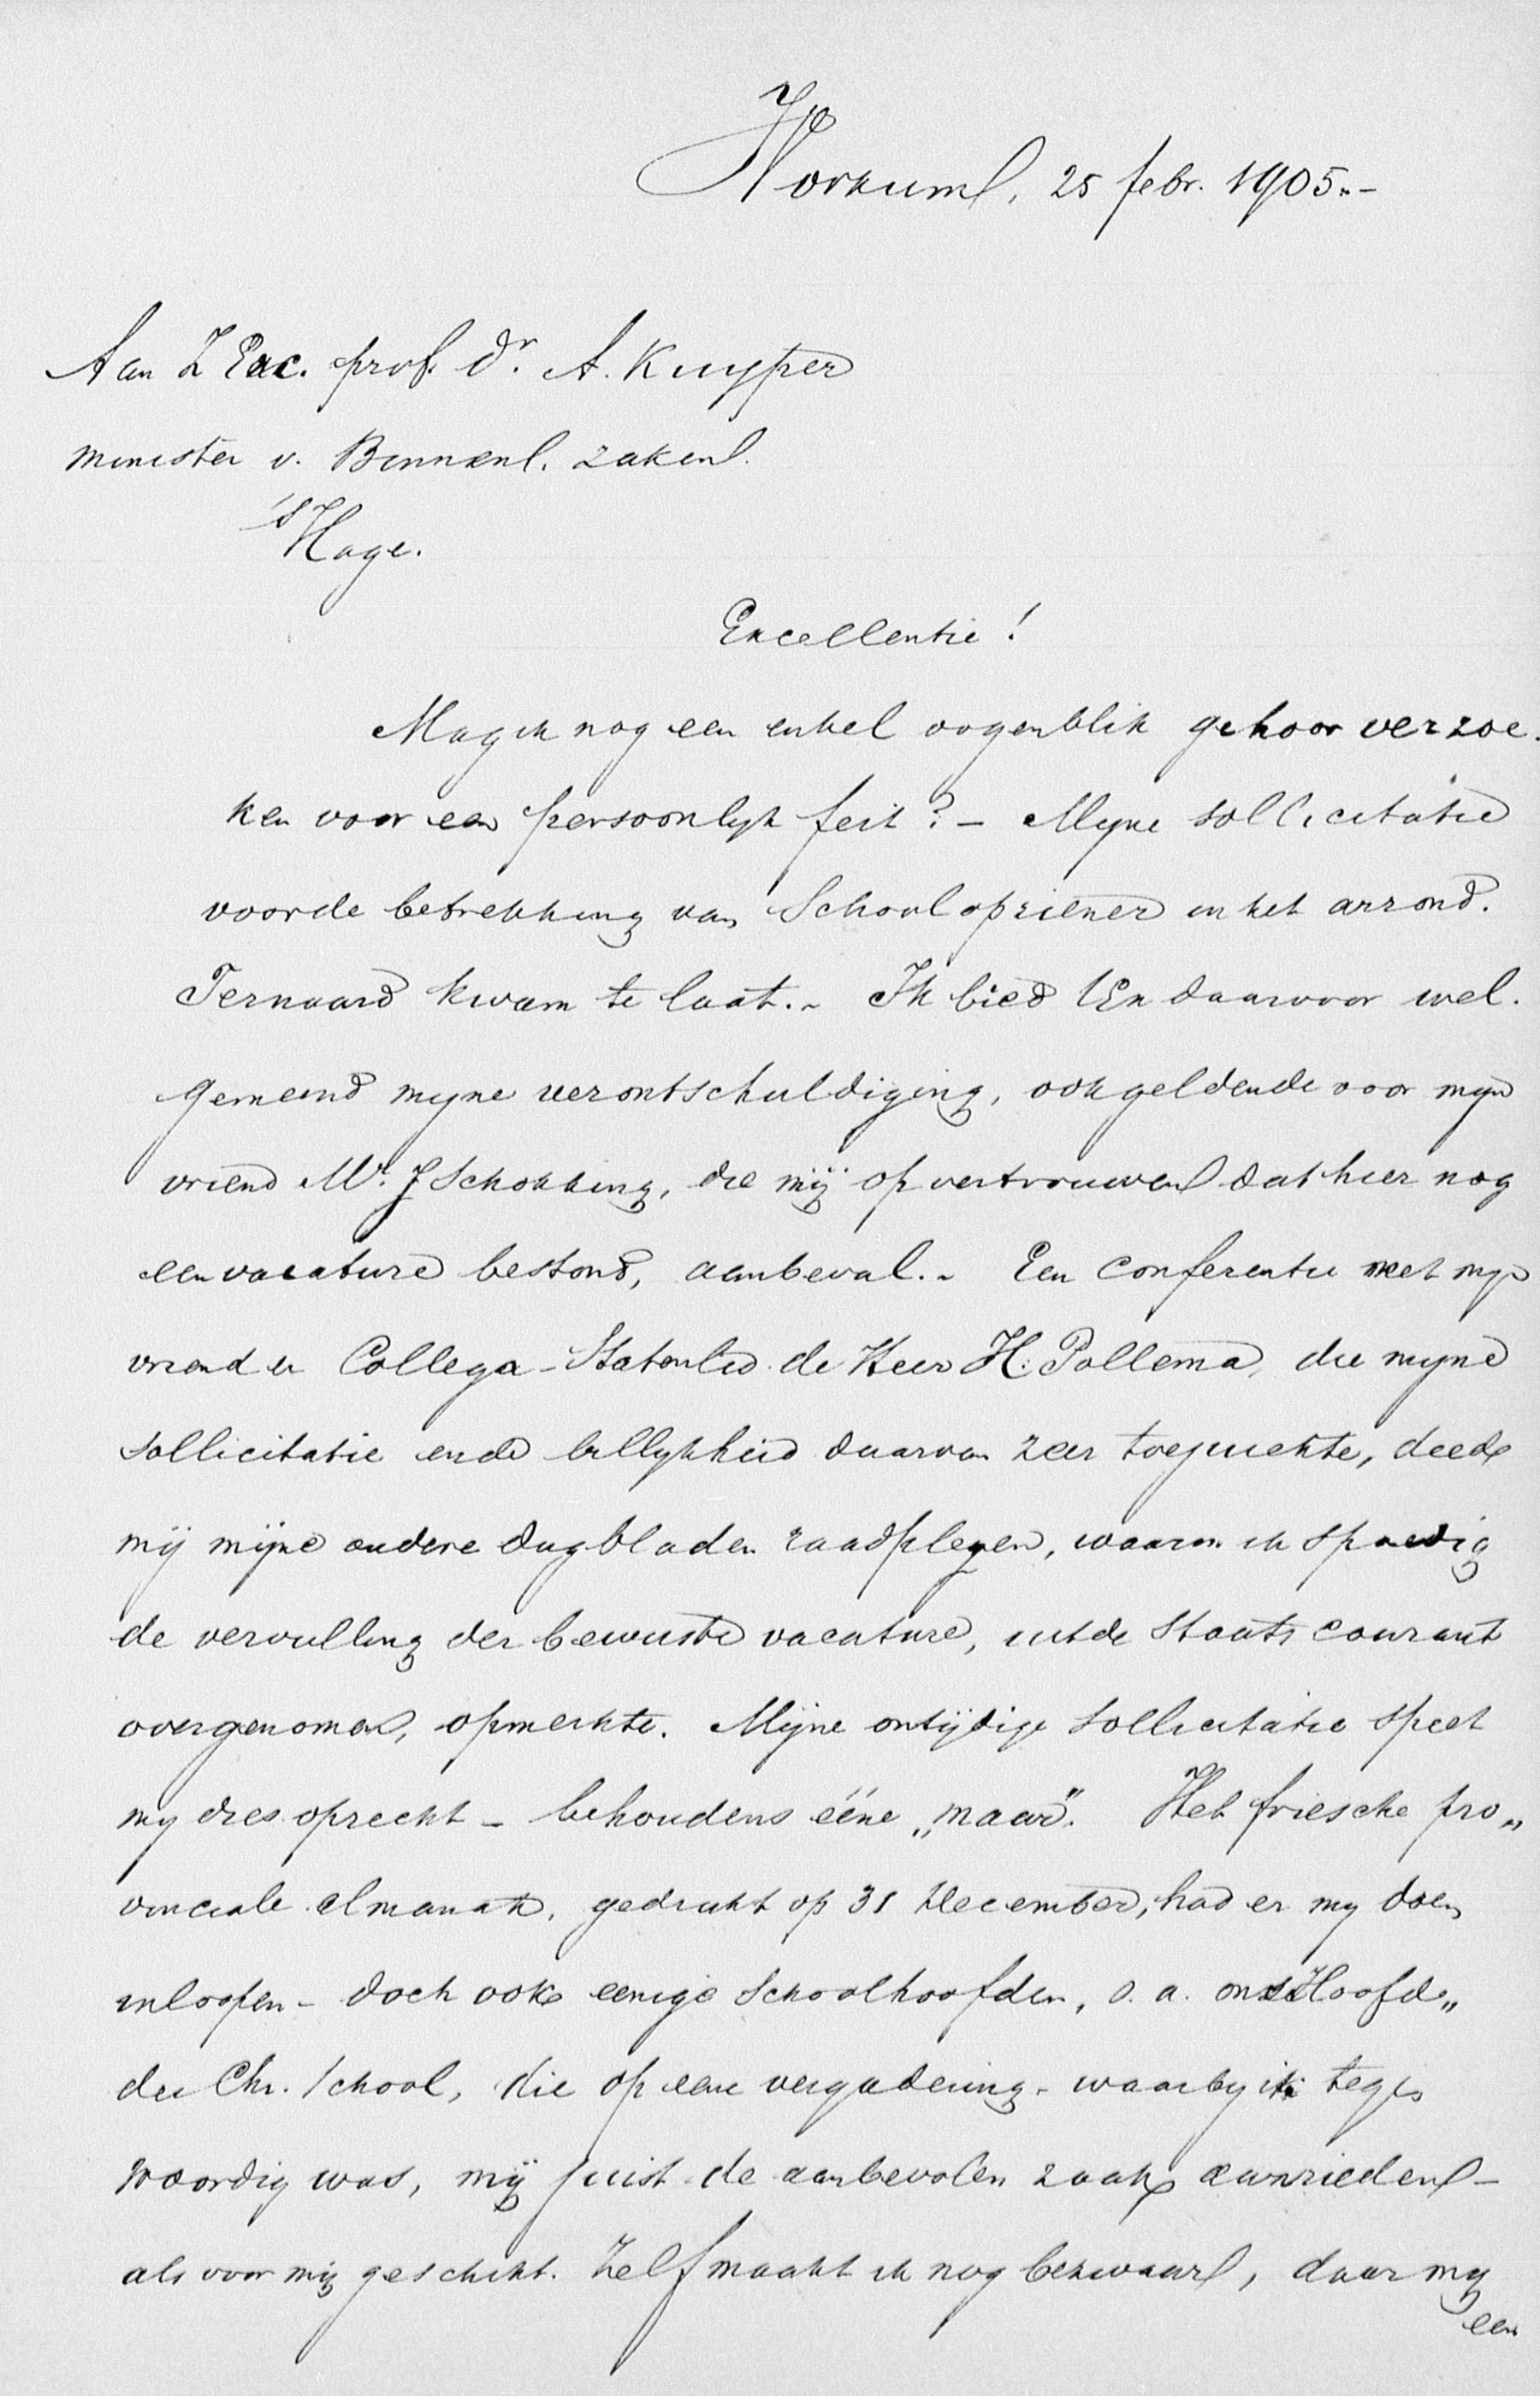 Workum, 25 febr. 1905.-
Aan Z Exc. prof. dr. A. Kuyper
minister v. Binnenl. zaken.
's Hage.
Excellentie!
Mag ik nog een enkel oogenblik gehoor verzoe-
ken voor een persoonlyk feit? - Myne sollicitatie
voor de betrekking van Schoolopziener in het arrond.
Ternaard kwam te laat. - Ik bied UEx daarvoor wel-
gemeend myne verontschuldiging, ook geldende voor myn
vriend Mr. J Schokking, die mij op vertrouwen dat hier nog
een vacature bestond, aanbeval. - Een conferentie met myn
vriend en Collega-Statenlid de Heer H. Pollema, die myne
sollicitatie en de billykheid daarvan zeer toejuichte, deed
mij mijne oudere dagbladen raadplegen, waarin ik spoedig
de vervulling der bewuste vacature, uit de Staatscourant
overgenomen, opmerkte. Mijne ontijdige sollicitatie speet
my dies oprecht - behoudens ééne "maar". Het friesche pro„
vinciale almanak, gedrukt op 31 December, had er my doen
inloopen - doch ook eenige Schoolhoofden, o.a. ons Hoofd„
der Chr. School, die op eene vergadering - waarby ik tegen
woordig was, mij juist de aanbevolen zaak aanrieden -
als voor mij geschikt. Zelf maakt ik nog bezwaar, daar my
een